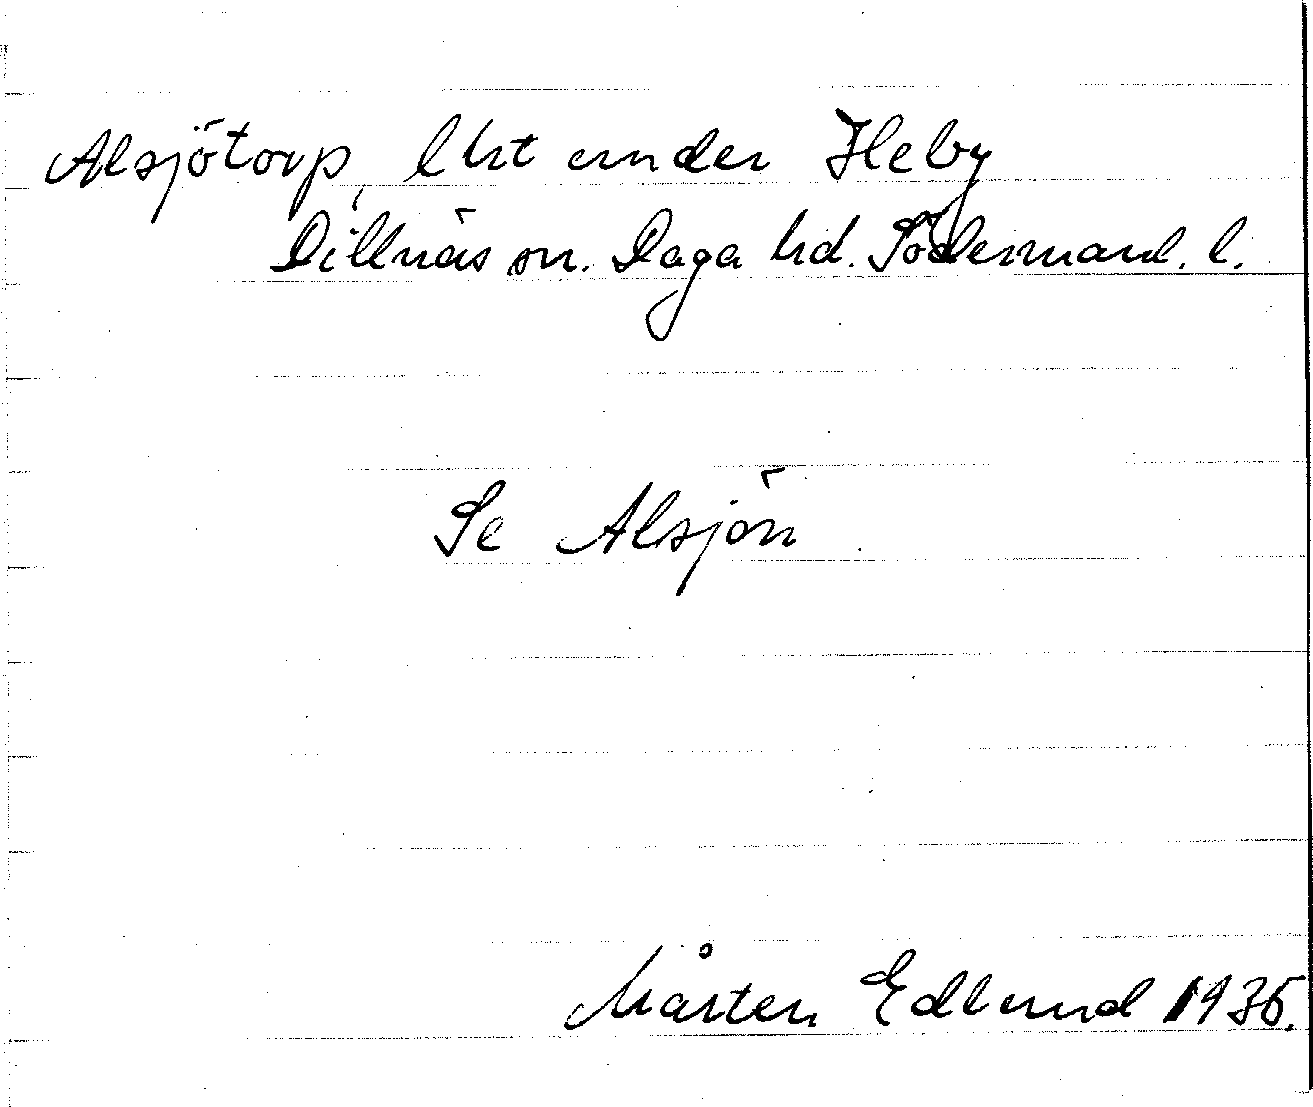 Alsjötorp, lht under Heby
Dillnäs sn. Daga hd. Södermanl. l.
Se Alsjön
Mårten Edlund 1936.